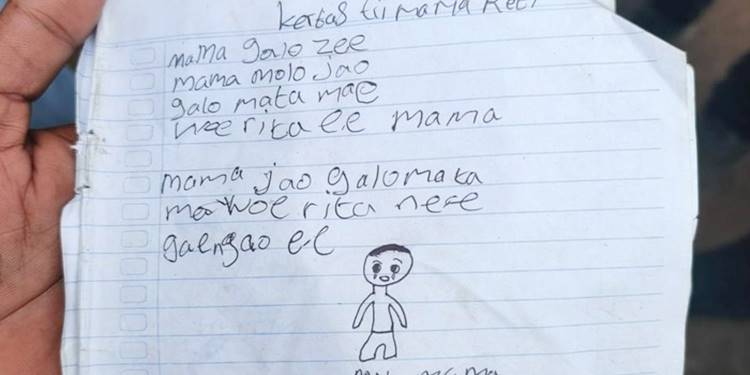 kertas tii mama Reti
mama galo zee
mama molo jao
galo mata mae
woe rita ee mama
mama jao galo mata
mae woe rita nee
gae ngao e-e
mama